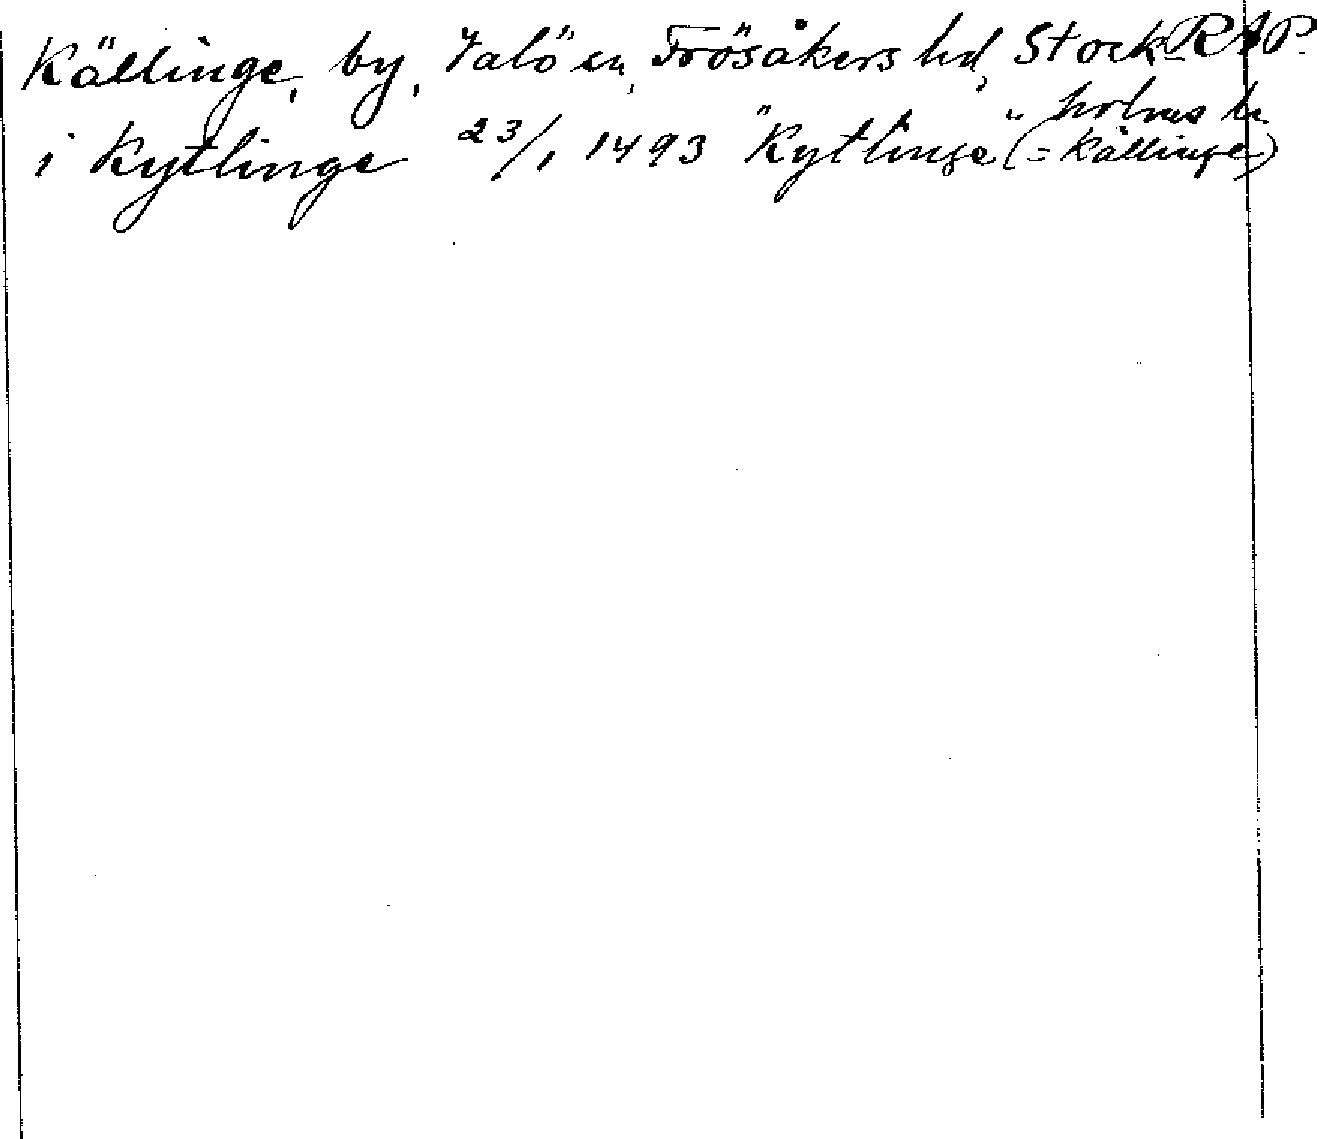 Källinge, by, Valö sn, Frösåkers hd, Stock- RAP.
holms ln
i Kytlinge 23/1 1493 "Kytlinge" (= Källinge)